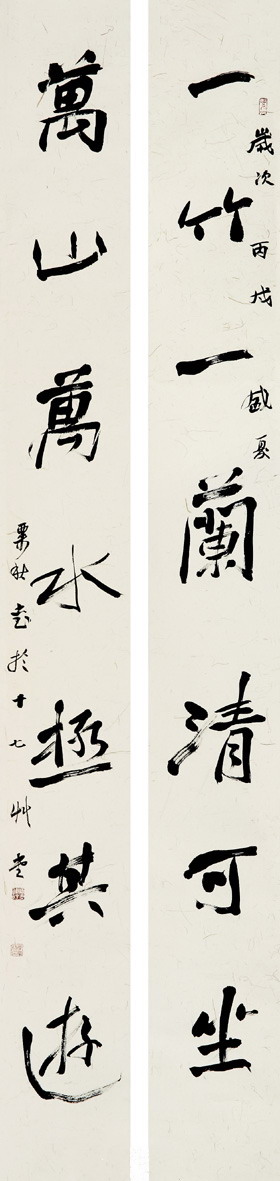 一竹一蘭清可坐
歲次丙戌盛夏
萬山萬水極其遊
栗秋書於十七艸堂